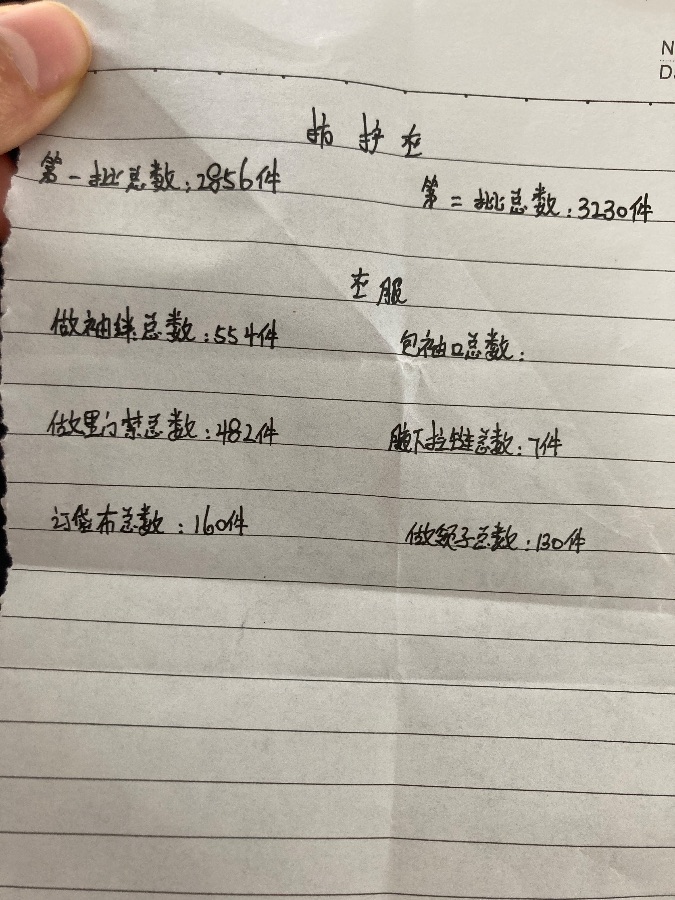 防护衣
第一批总数:2856件 第二批总数:3230件
衣服
做袖绊总数:554件 包袖口总数:
做里门禁总数:482件 腋下拉链总数:7件
订袋布总数:160件 做领子总数:130件